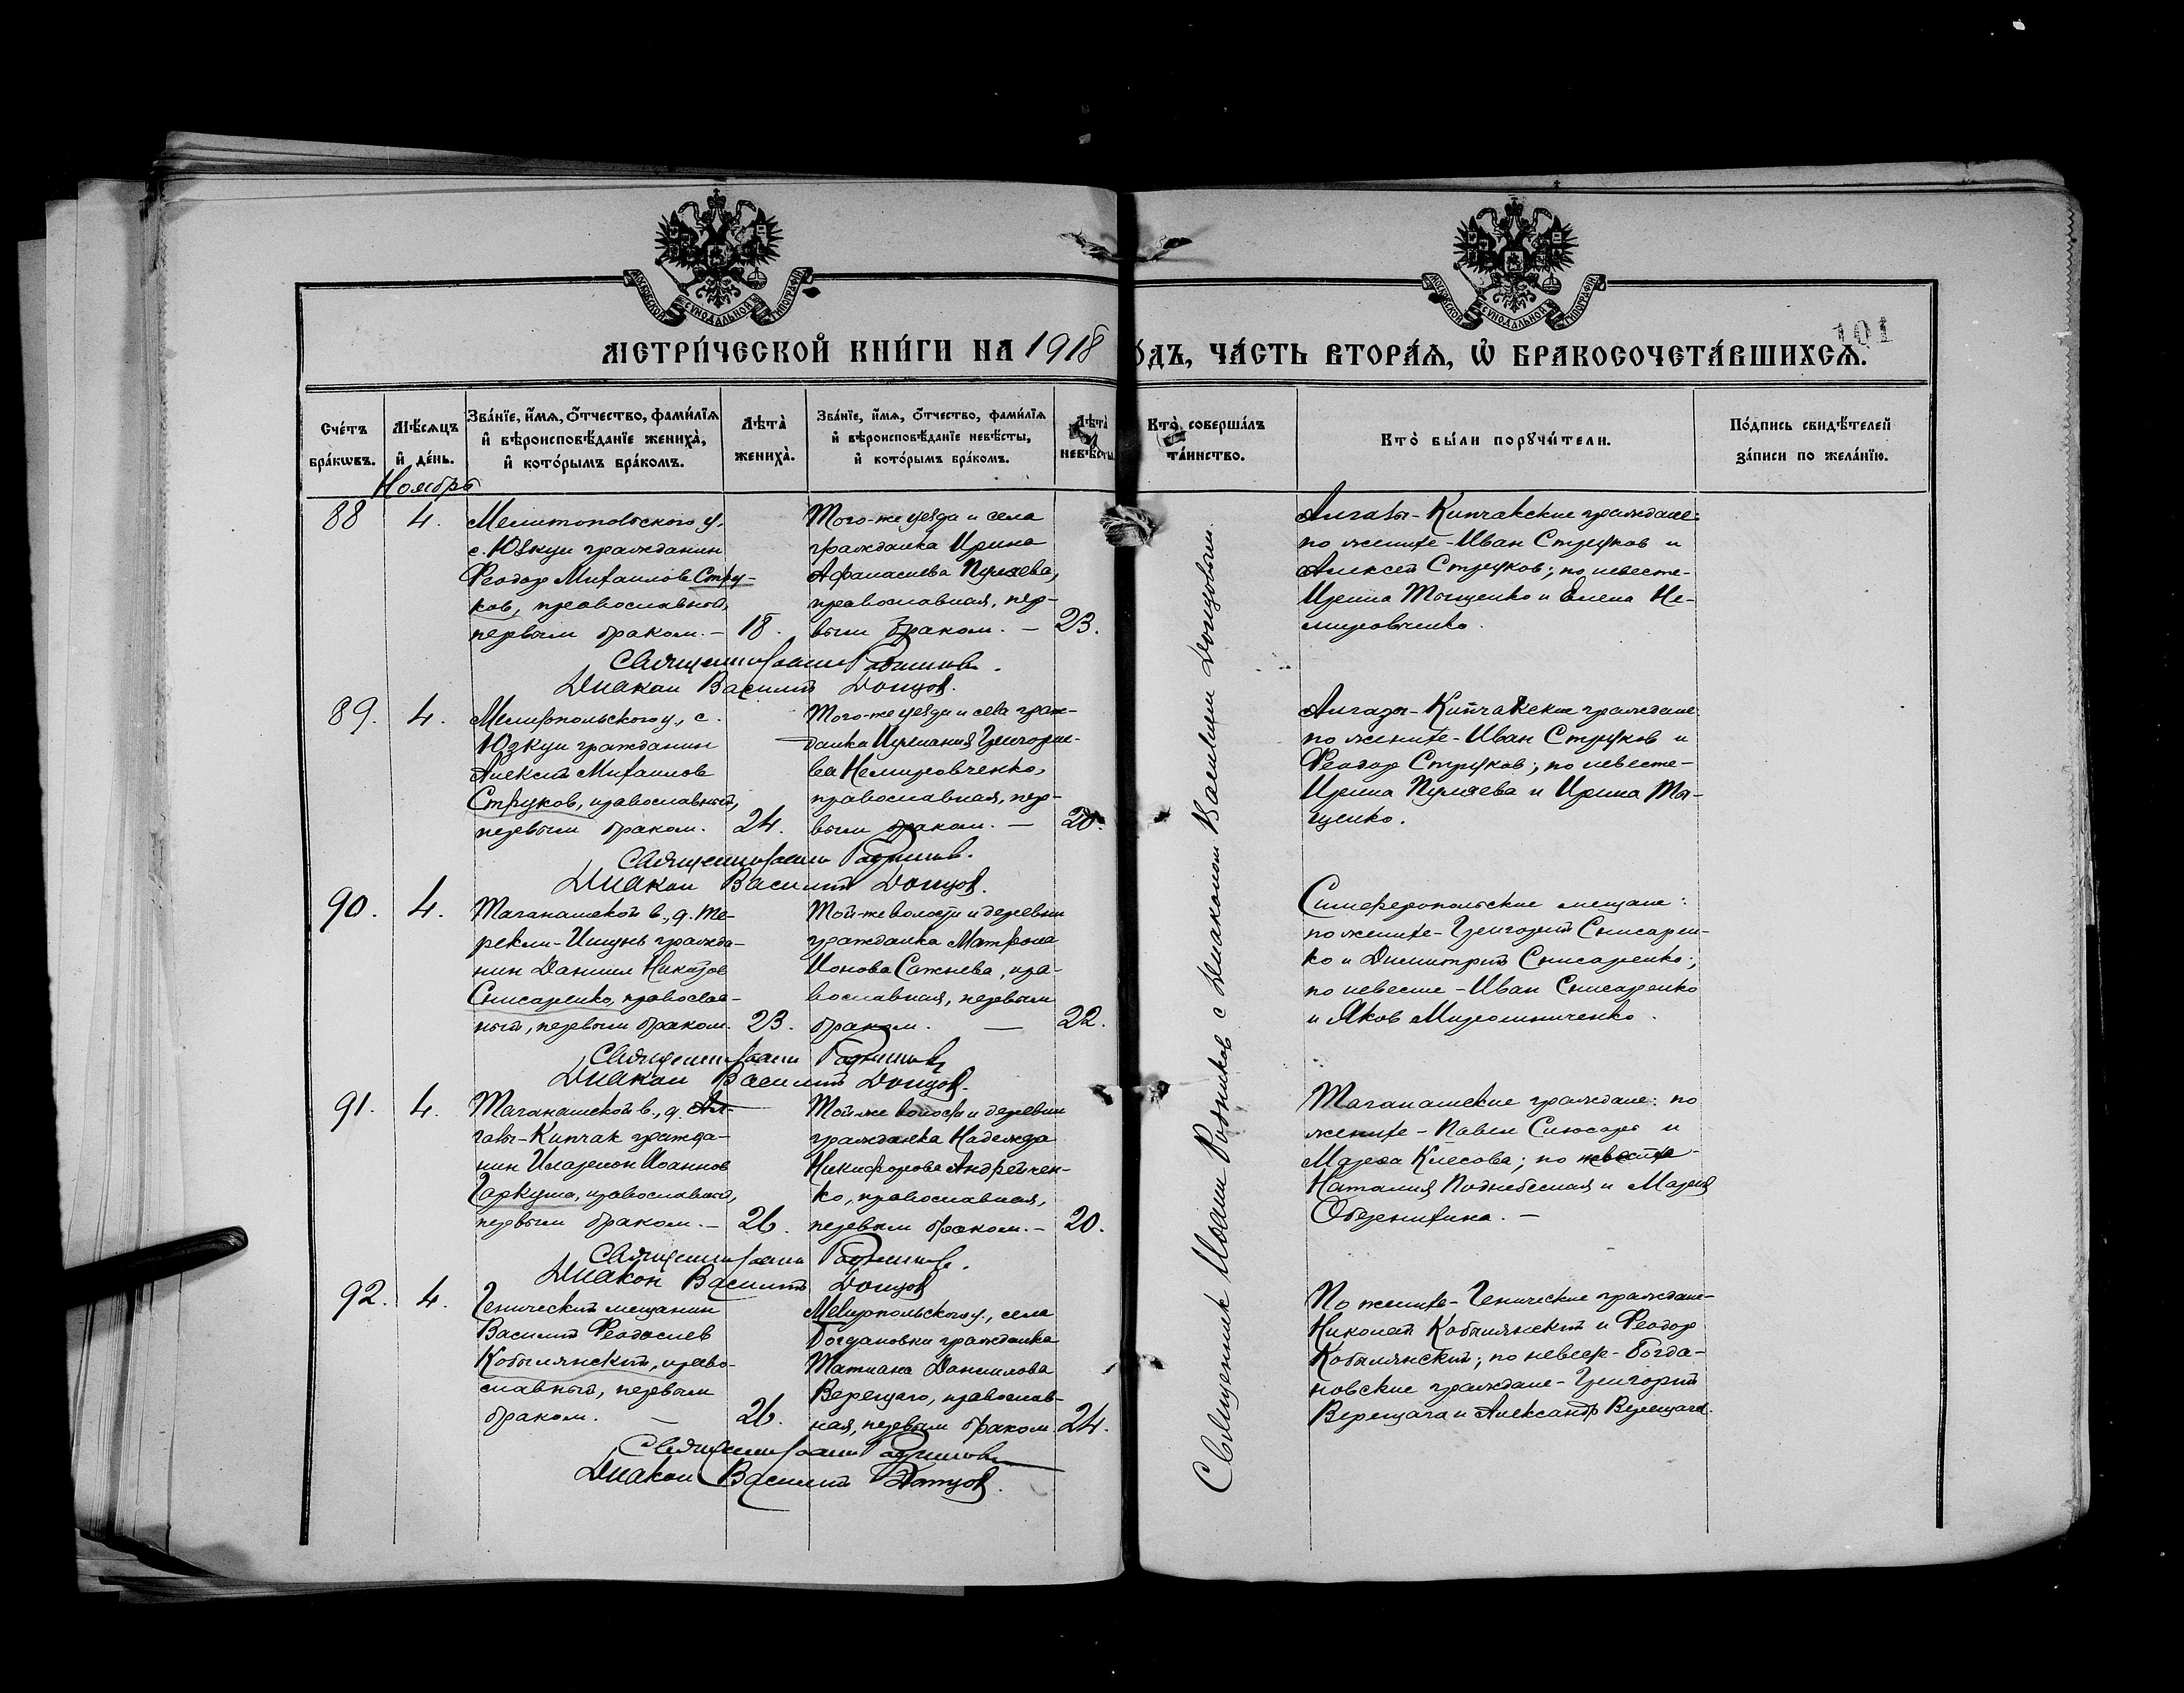 МОСКОВСКОЙ СѴНОДАЛЬНОЙ ТИПОГРАФІИ
МОСКОВСКОЙ СѴНОДАЛЬНОЙ ТИПОГРАФІИ
101
МЕТРИ́ЧЕСКОЙ КНИ́ГИ НА 1918 ГО́ДЪ, ЧА́СТЬ ВТОРА́Ѧ, Ѡ҆ БРАКОСОЧЕТА́ВШИХСѦ.
Сче́тъ бра́кѡвъ.
Мѣ́сѧцъ и҆ де́нь.
Зва́нїе, и҆́мѧ, ѻ҆́тчество, фами́лїѧ и҆ вѣроисповѣ́данїе жениха̀, и҆ кото́рымъ бра́комъ.
Лѣта̀ жениха̀.
Зва́нїе, и҆́мѧ, ѻ҆́тчество, фами́лїѧ и҆ вѣроисповѣ́данїе невѣ́сты, и҆ кото́рымъ бра́комъ.
Лѣта̀ невѣ́сты
Кто̀ соверша́лъ та́инство.
Кто̀ бы́ли порꙋчи́тели.
По́дпись свидѣ́телей за́писи по жела́нїю.
Ноябрь
88
4.
Мелитопольского у.
с. Юзкуи гражданин
Феодор Михаилов Стру-
ков, православный,
первым браком. –
18.
Того-же уезда и села
гражданка Ирина
Афанасиева Пуляева,
православная, пер-
вым браком. –
23.
Алгазы-Кипчакские граждане:
по женихе - Иван Струков и
Алексей Струков; по невесте-
Ирина Тыщенко и Елена Не-
мировченко.
Священник Иоанн Родников.
Диакон Василий Донцов.
89.
4.
Мелитопольского у., с.
Юзкуи гражданин
Алексий Михаилов
Струков, православный,
первым браком.
24.
Того-же уезда и села граж-
данка Григорие-
ва Немировченко,
православная, пер-
вым браком. –
20.
Алгазы-Кипчакские граждане
по женихе - Иван Струков и
Феодор Струков; по невесте-
Ирина Пуляева и Ирина Ты-
щенко.
Священник Иоанн Родников.
Диакон Василий Донцов.
90.
4.
Таганашской в., д. Те-
рекли-Ишунь гражда-
нин Даниил Никитов
Снисаренко, православ-
ный, первым браком.
23.
Той-же волости и деревни
гражданка Матрона
Ионова Сажнева, пра-
вославная, первым
браком. –
22.
Симферопольские мещане:
по женихе - Григорий Снисарен-
ко и Димитрий Снисаренко;
по невесте - Иван Снисаренко
и Яков Мирошниченко.
Священник Иоанн Родников
Диакон Василий Донцов.
91.
4.
Таганашской в., д. Ал-
газы-Кипчак гражда-
нин Иларион Иоаннов
Гаркуша, православный,
первым браком. –
26.
Той-же волости и деревни
гражданка Надежда
Никифорова Андрейчен-
ко, православная,
первым браком. –
20.
Таганашские граждане: по
женихе - Павел Слюсарь и
Клесова; по невесте -
Наталия Поднебесная и Мария
Священник Иоанн Родников.
Диакон Василий Донцов
92.
4.
Генический мещанин
Василий Феодосиев
Кобылянский, право-
славный, первым
браком. –
26.
Мелитопольского у., села
Богдановки гражданка
Татиана Даниилова
Верещаго, православ-
ная, первым браком.
24.
По женихе - Генические граждане-
Николай Кобылянский и Феодор
Кобылянский; по невесте - Богда-
новские граждане - Григорий
Верещага и Александр Верещага.
Священник Иоанн Родников
Диакон Василий Донцов.
Священник Иоанн Родников с диаконом Василием Донцовым.